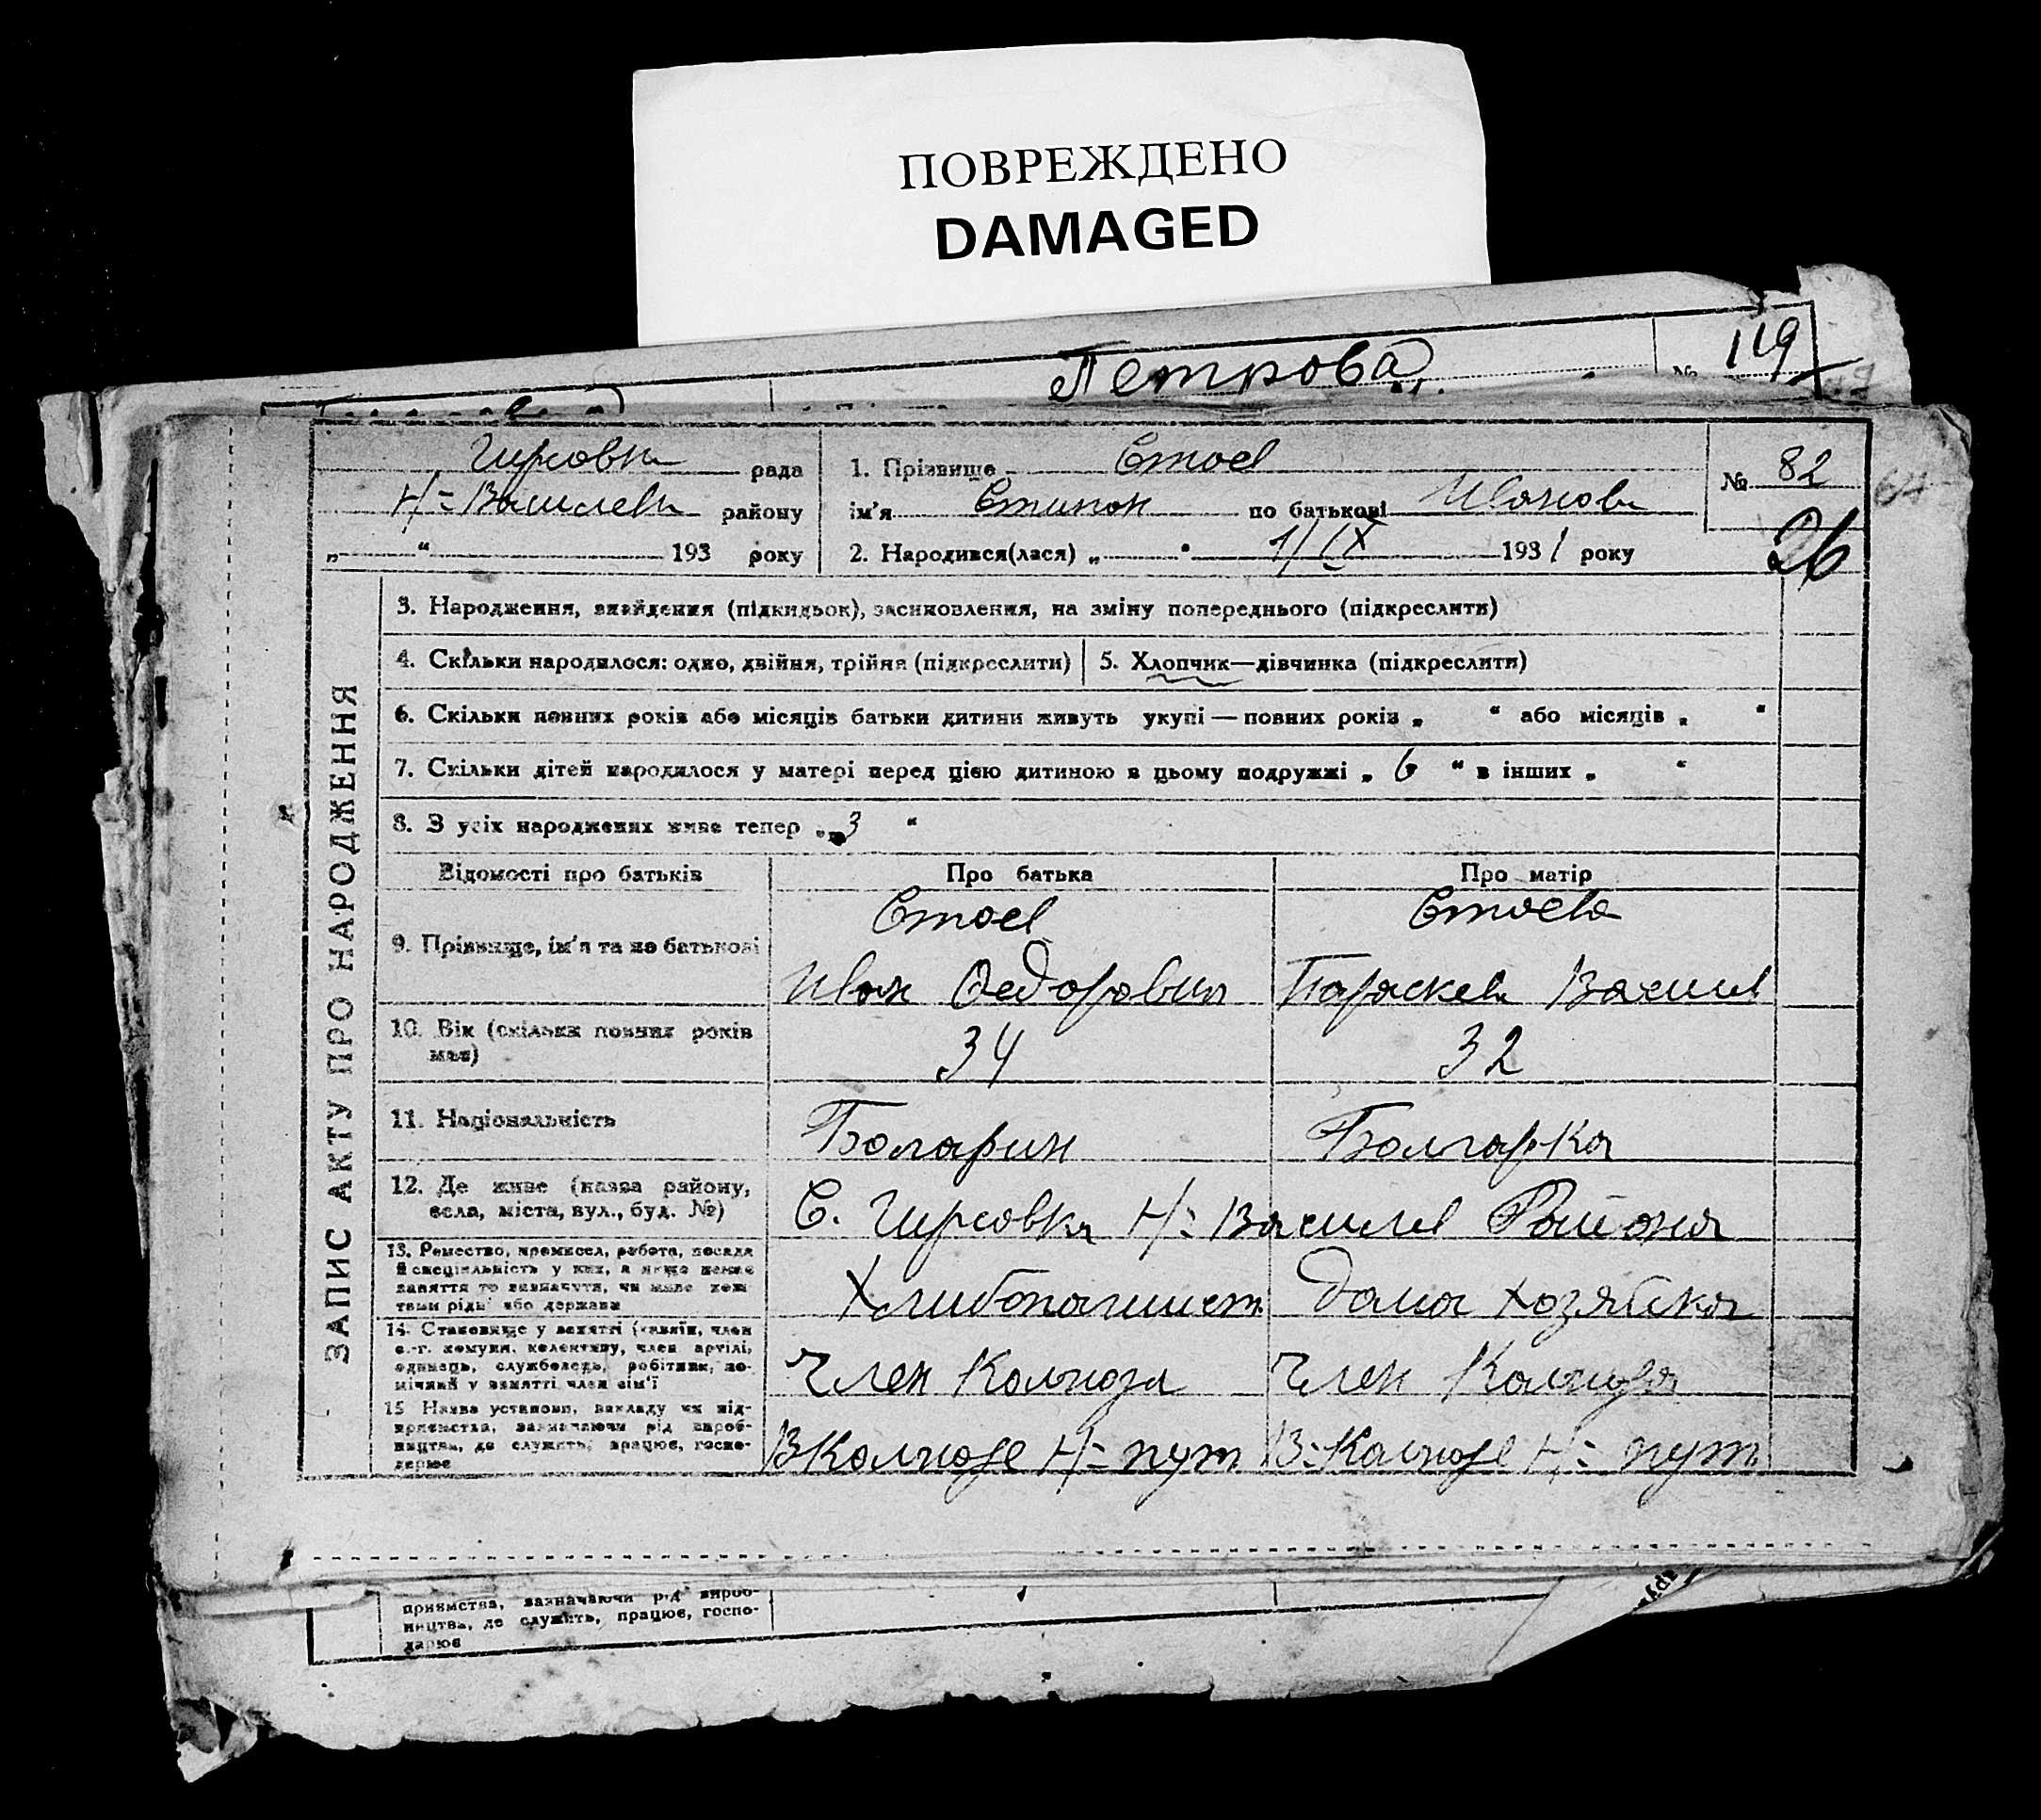 ПОВРЕЖДЕНО
DAMAGED
Петрова № 119
Гирсовка рада
Н=Василевк району
„ “ 193 року
1. Прізвище Стоев
ім’я Степан по батькові Иванов
2. Народився(лася) „ “ 1/IX 1931 року
№ 82
64
26
ЗАПИС АКТУ ПРО НАРОДЖЕННЯ
3. Народження, знайдення (підкидьок), засиновлення, на зміну попереднього (підкреслити)
4. Скільки народилося: одно, двійня, трійня (підкреслити)
5. Хлопчик—дівчинка (підкреслити)
6. Скільки повних років або місяців батьки дитини живуть укупі — повних років „ “ або місяців „ “
7. Скільки дітей народилося у матері перед цією дитиною в цьому подружжі „ 6 “ в інших „ “
8. З усіх народжених живе тепер „ 3 “
Відомості про батьків Про батька Про матір
9. Прізвище, ім’я та по батькові
Стоев
Иван Федорович
Стоева
Параскева Васил
10. Вік (скільки повних років
має)
34 32
11. Національність
Болгарин Болгарка
12. Де живе (назва району,
села, міста, вул., буд. №)
С. Гирсовка Н= Василев Района
13. Ремество, промисел, робота, посада
й спеціяльність у них, а якщо немає
заняття то визначити, чи живе кош-
тами рідн. або держави
Хлибопашест Дома хозяйска
14. Становище у занятті (хазяїн, член
с.-г. комуни, колективу, член артілі,
одинець, службовець, робітник, по-
мічний у занятті член сім’ї
Член Колхоза Член Колхоза
15 Назва установи, закладу чи під-
приємства, зазначаючи рід вироб-
ництва, де служить, працює, госпо-
дарює
В Колхозе Н= пут В=Колхозе Н= пут
приємства, зазначаючи рід вироб-
ництва, де служить, працює, госпо-
дарює